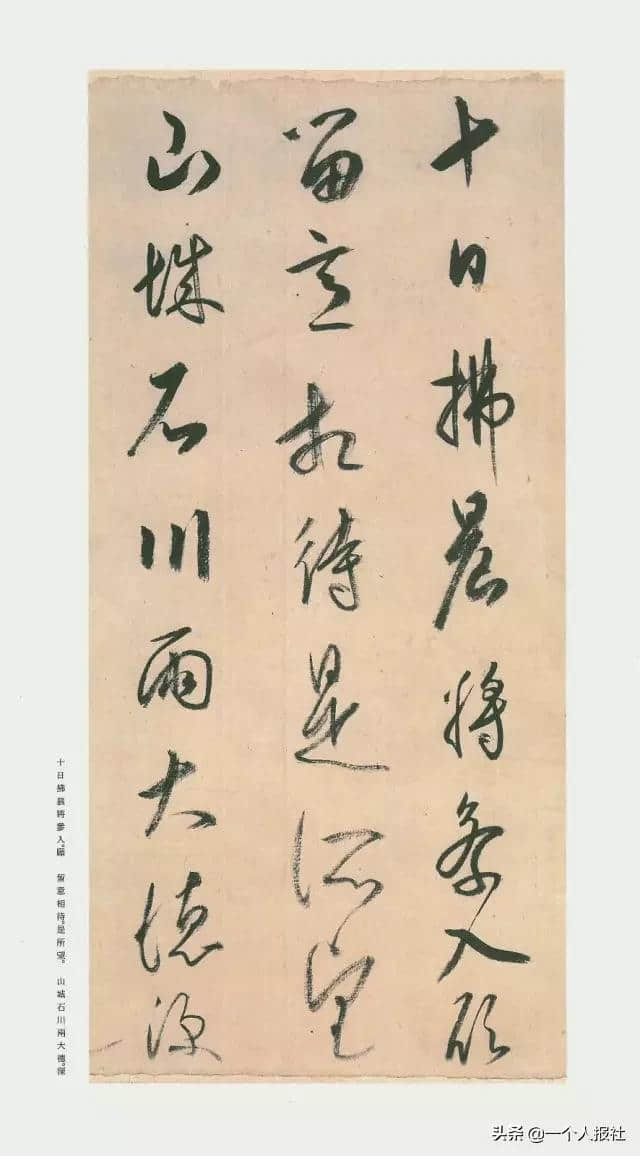 十日拂晨將參入願
留意相待是所望
山城石川兩大德深
十日拂晨將參入。願　留意相待。是所望。　山城石川兩大德。深
头条 @一个人报社